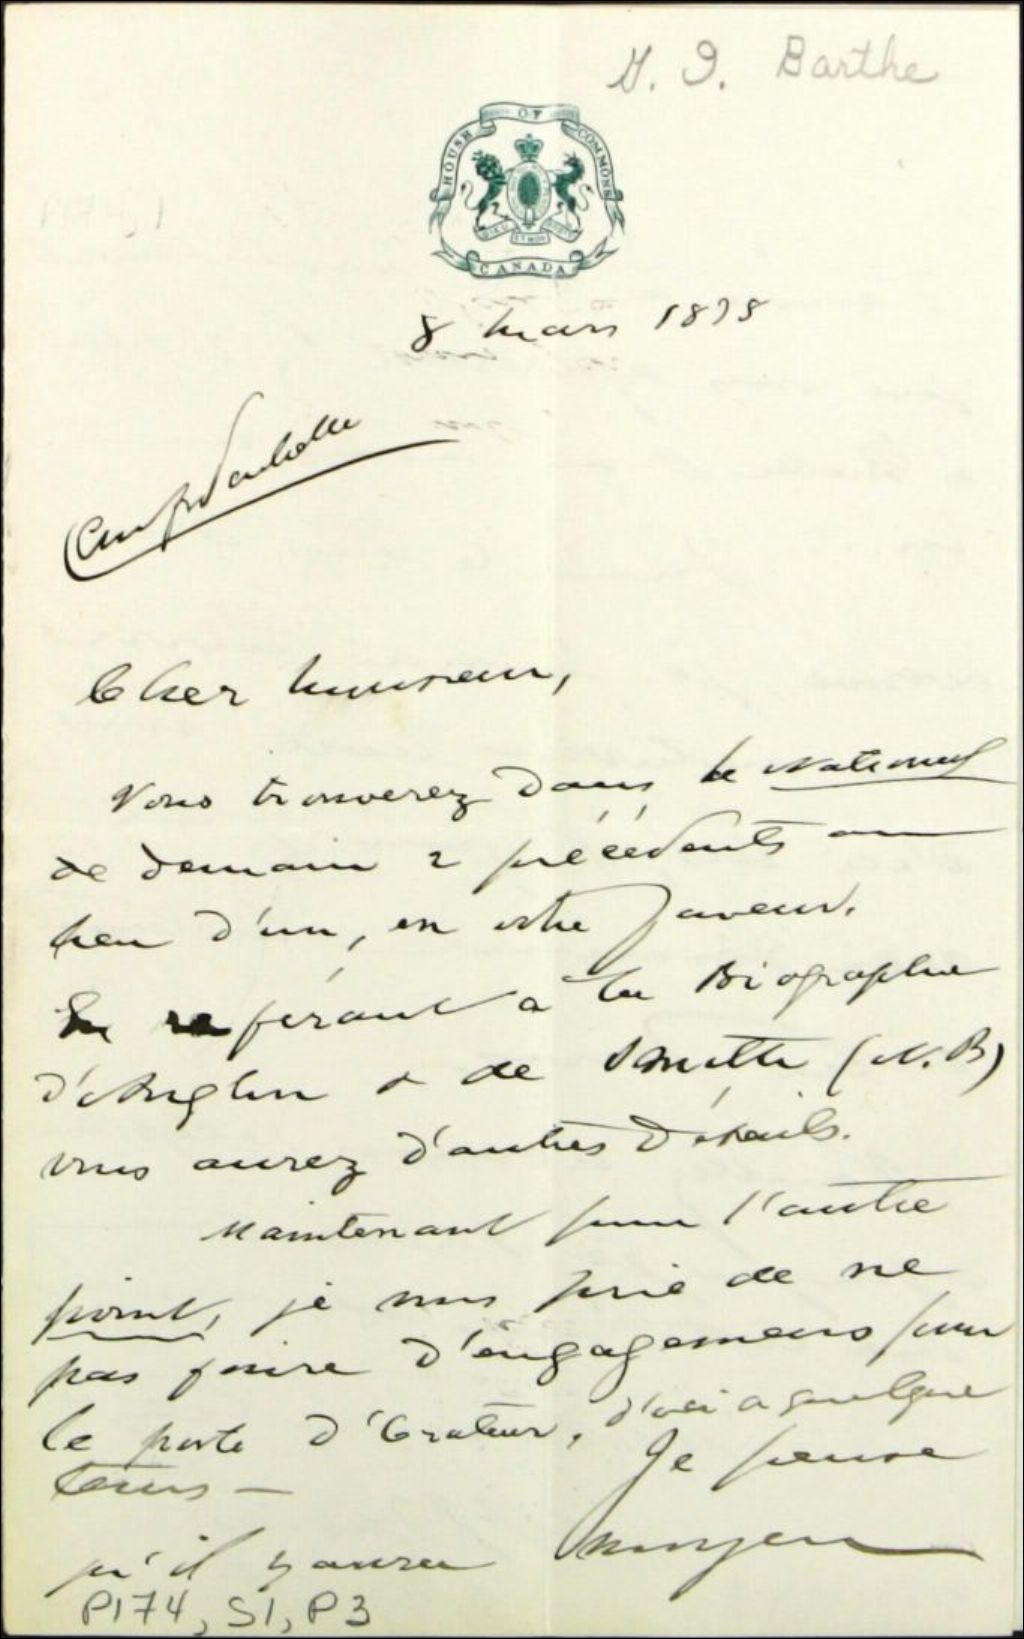 G. I. Barthe
HOUSE OF COMMONS
CANADA
8 mars 1878
Confidentielle
Cher monsieur,
Vous trouverez dans le National
de demain 2 précédents au
lieu d'un, en votre faveur.
En referant à la Biographie
d'Anglin & de Smith (N.B)
vous aurez d'autres détails.
Maintenant pour l'autre
point, je vous prie de ne
pas faire d'engagements pour
le poste d'Orateur, d'ici a quelque
temps –
Je pense
qu'il y aura moyen
P174, S1, P3